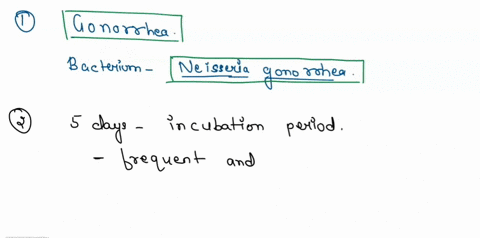 ① Gonorrhea.
Bacterium - Neisseria gonorrhea.
② 5 days - incubation period.
- frequent and